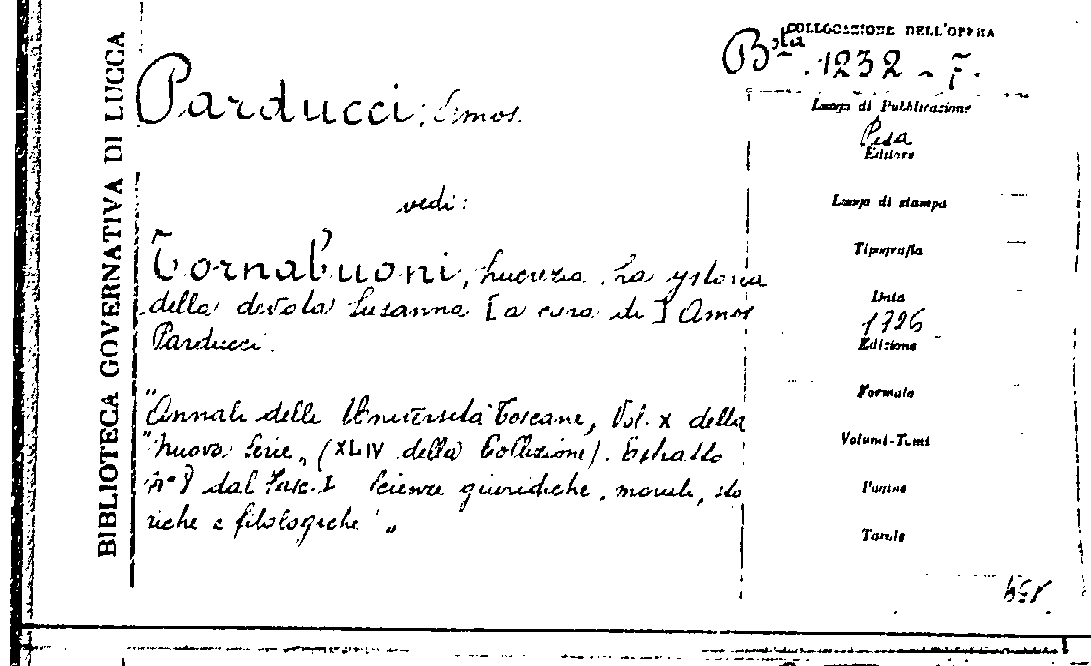 BIBLIOTECA GOVERNATIVA DI LUCCA
COLLOCAZIONE DELL'OPERA
B.sta 1232 - 7.
Parducci, Amos.
Luogo di Pubblicazione
Pisa
Editore
vedi:
Luogo di stampa
Tornabuoni, Lucrezia. La ystoria
della devota Susanna [a cura di] Amos
Parducci.
Tipografia
Data
1926
Edizione
Formato
"Annali delle Università Toscane, Vol. X della
"Nuova Serie„ (XLIV della Collezione). Estratto
n° 8 dal Fasc. I Scienze giuridiche, morali, sto
riche e filologiche„
Volumi-Tomi
Pagine
Tavole